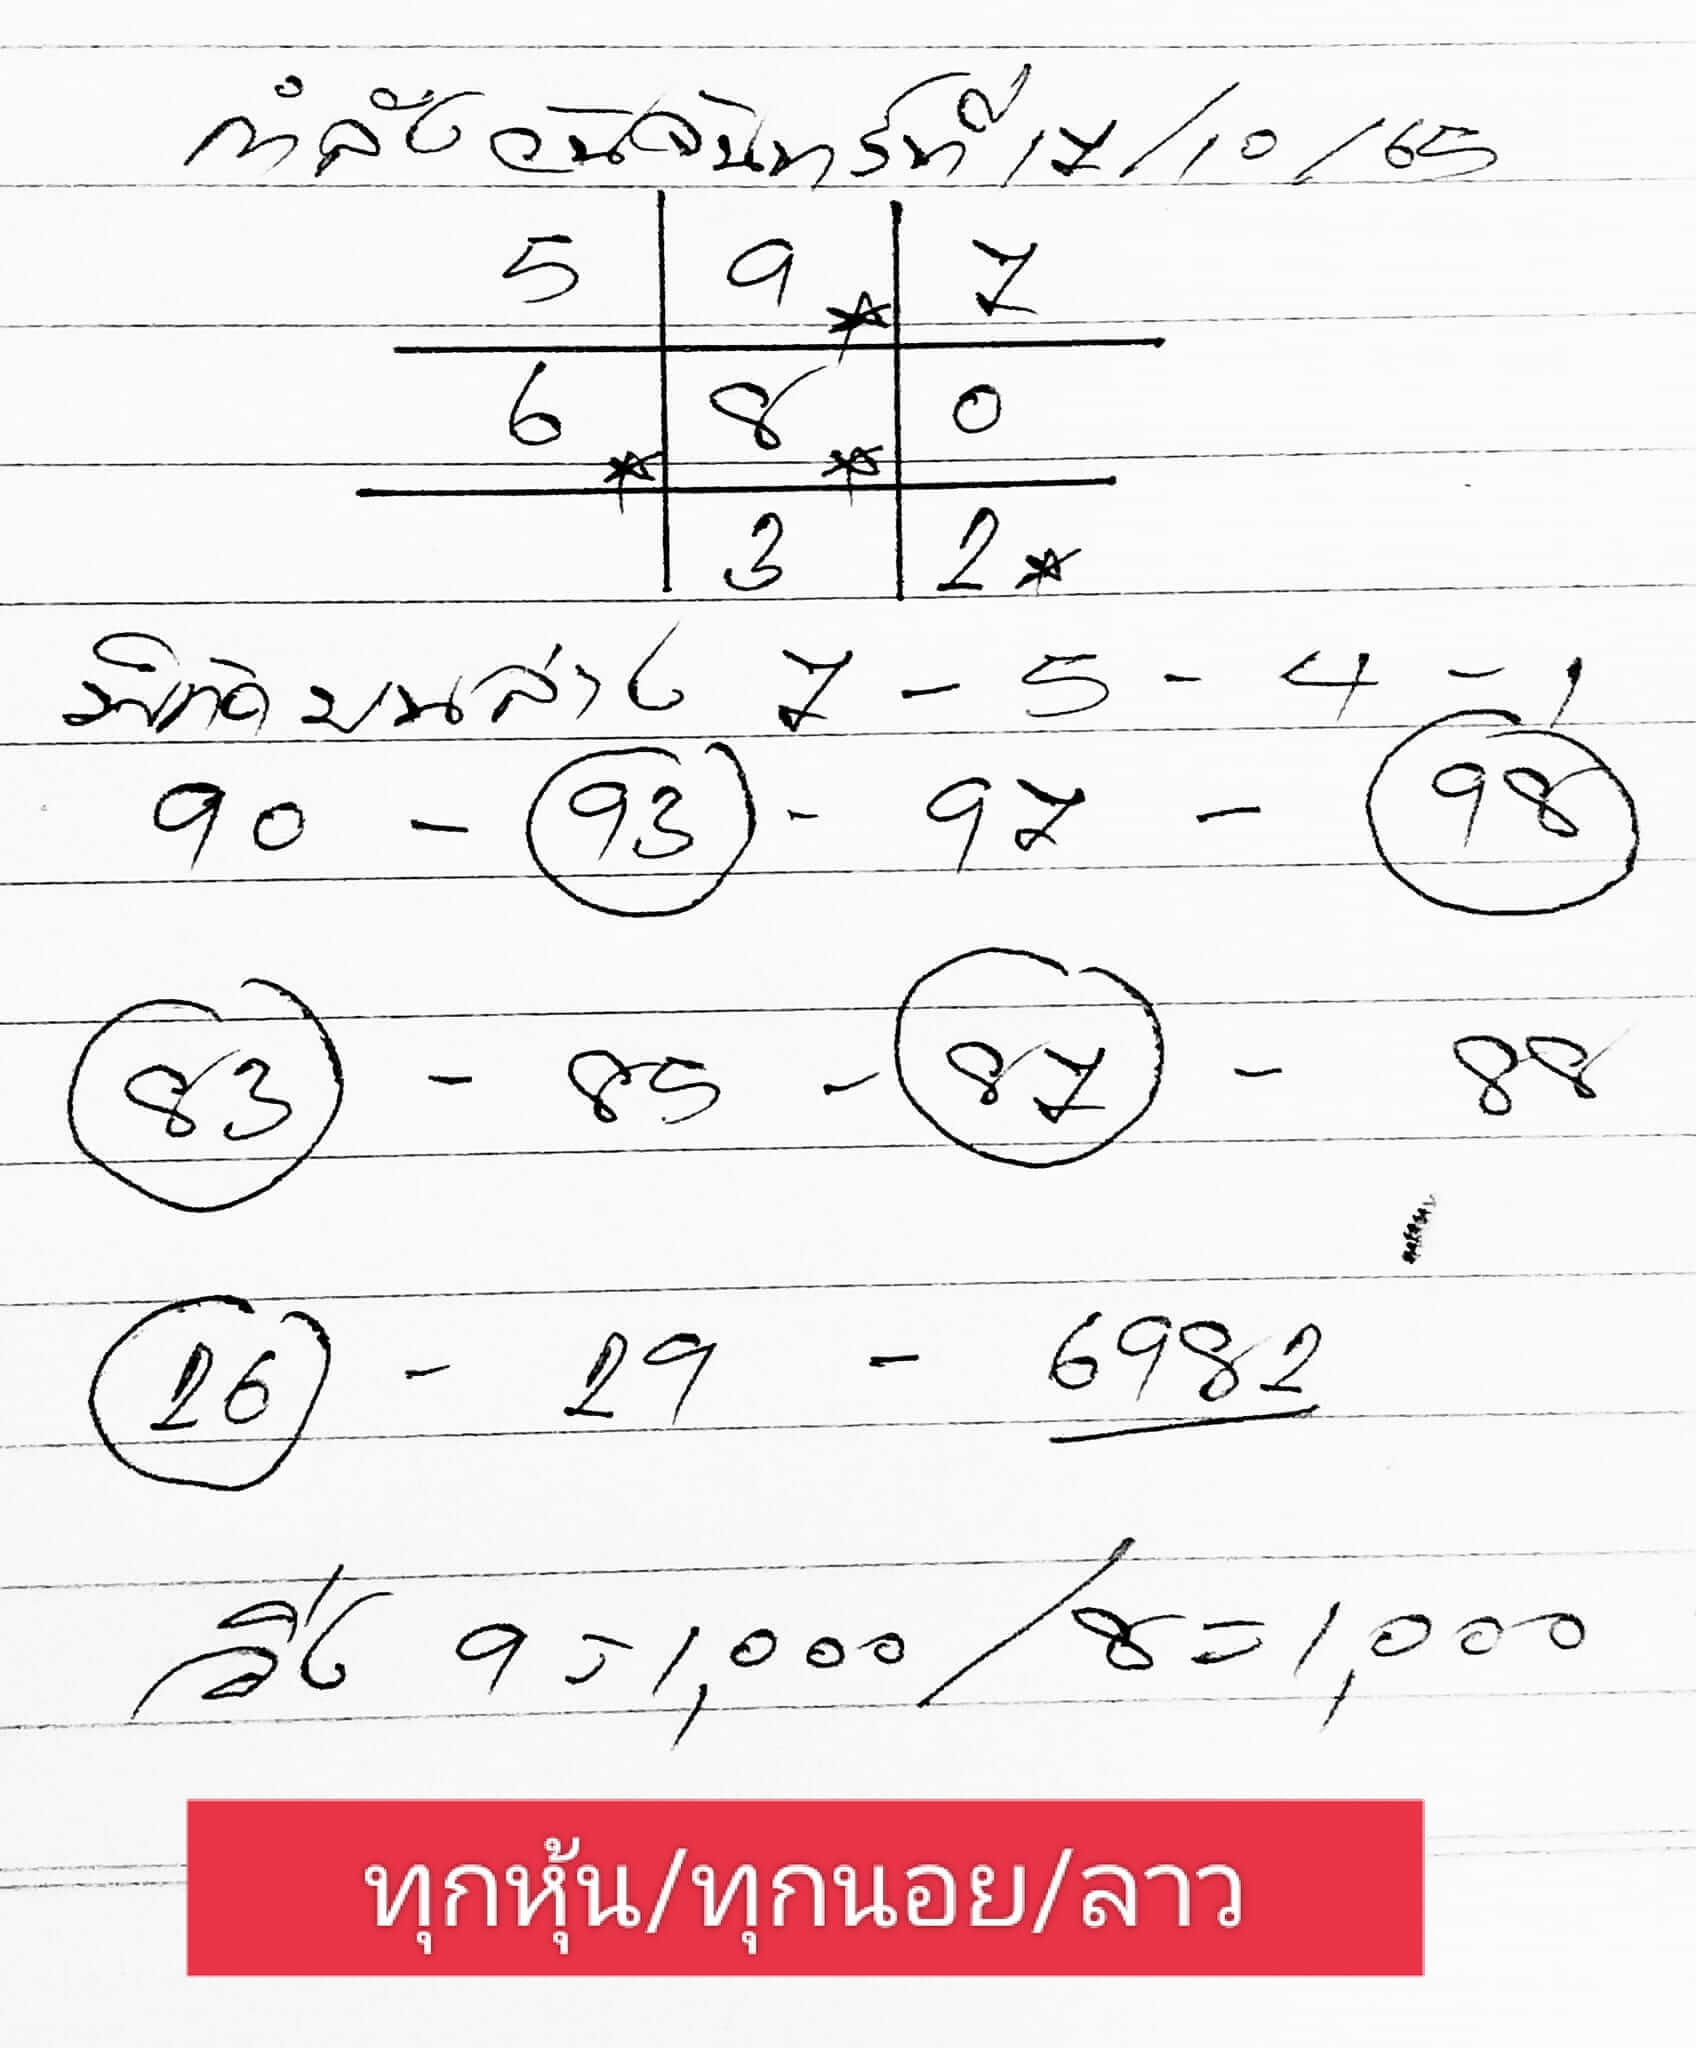 กำลังวันจันทร์ที่ 17/10/65
5 9 7
6 8 0
3 2
พิกัดบนล่าง 7 - 5 - 4 - 1
90 - 93 - 97 - 98
83 - 85 - 87 - 88
26 - 29 - 6982
วิ่ง 9=1,000/8=1,000
ทุกหุ้น/ทุกนอย/ลาว